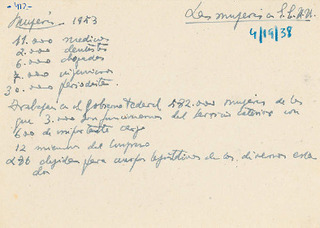 -417-
Mujeres 1953
Las mujeres en E.E.U.U.
4/19/38
11.000 medicos
2.000 dentistas
6.000 abogados
7.000 ingenieros
30.000 periodistas.
Trabajan en el gobierno Federal 582.000 mujeres de las
que 3.000 son funcionarios del servicio exterior con
600 de importante cargo
12 miembros del Congreso
286 elegidas para cuerpos legislativos de los diversos esta
dos